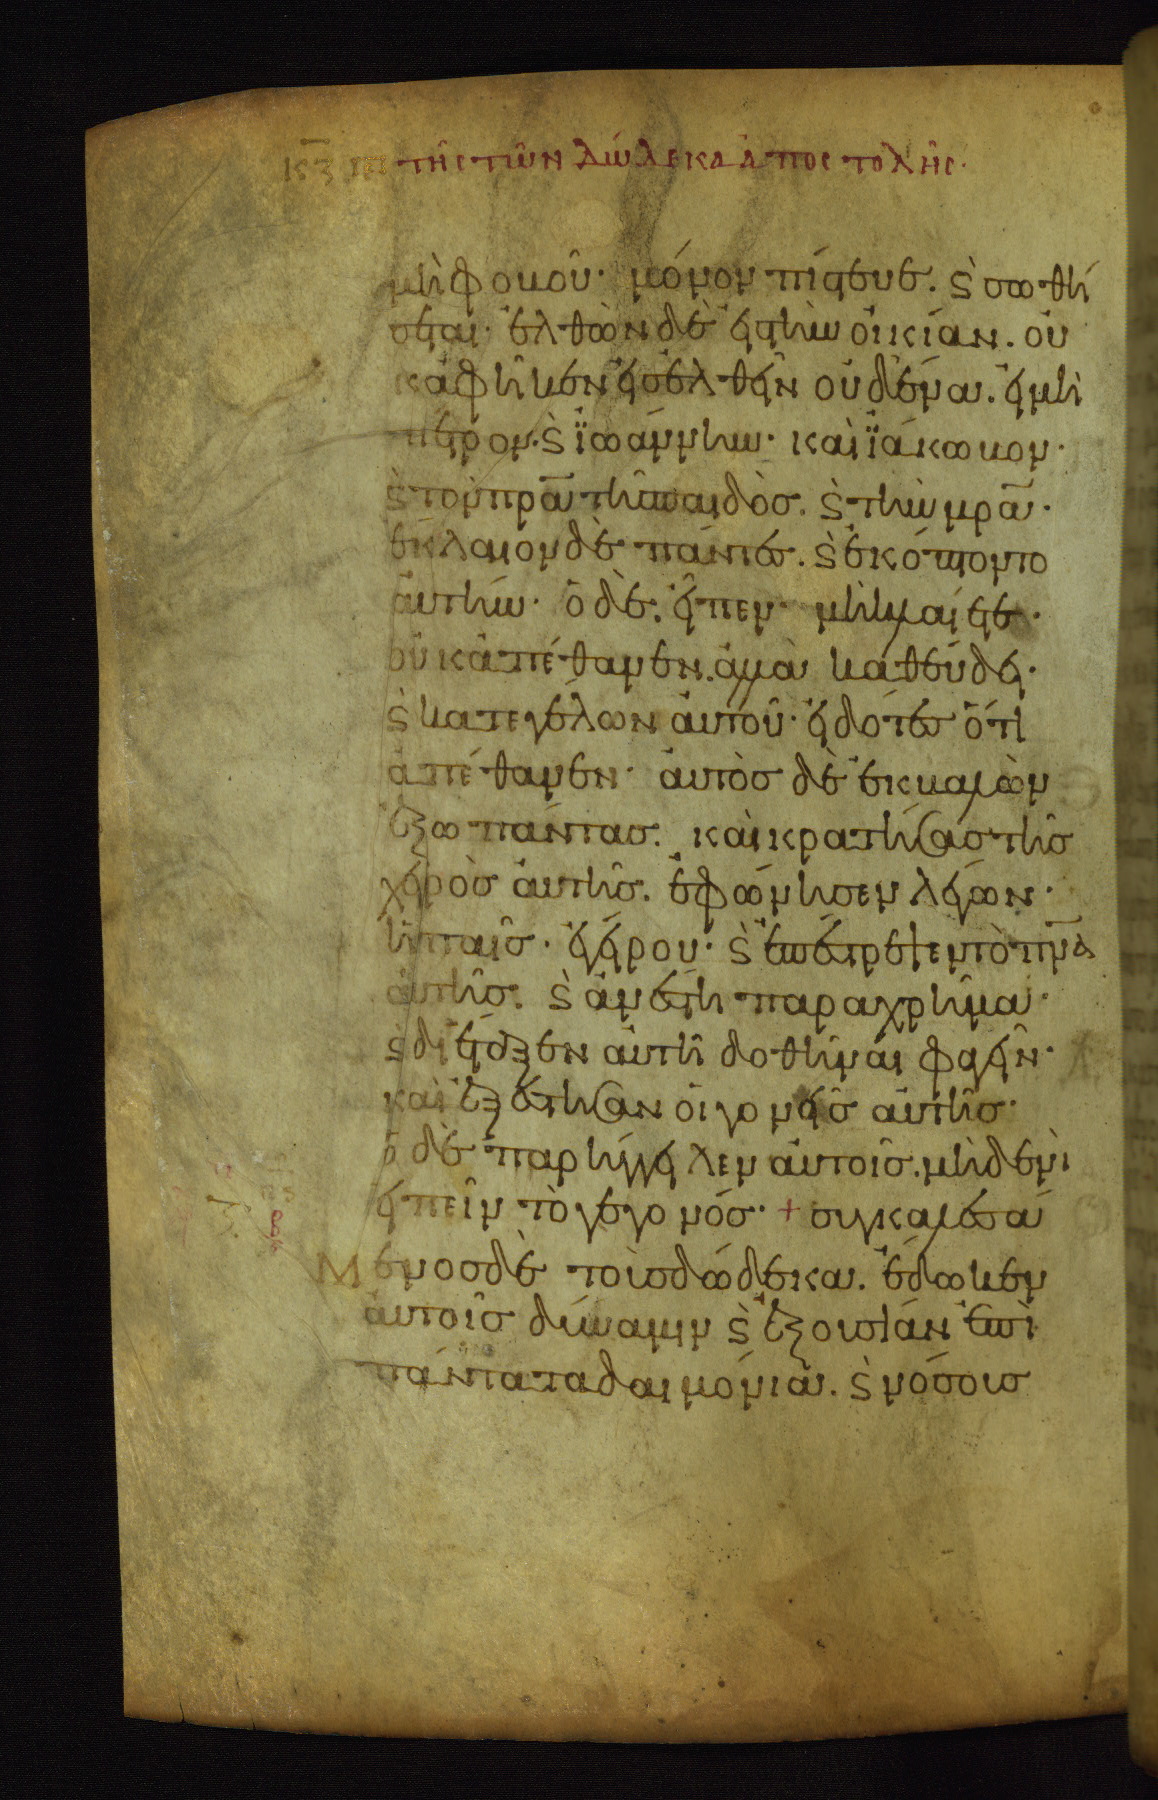 κζ πε τῆς τῶν δώδεκα ἀποστολῆς·
μὴ φοβοῦ· μόνον πίστευε. ϗ σωθή
σεται· ἐλθὼν δὲ εἰς τὴν οἰκίαν. οὐ
κ ἀφῆκεν εἰσελθεῖν οὐδένα. εἰ μὴ
πέτρον· ϗ ϊωάννην· καὶ ϊάκωβον·
ϗ τὸν πρ̅α τῆς παιδὸς. ϗ τὴν μρ̅α·
ἔκλαιον δὲ πάντες. ϗ ἐκόπτοντο
αὐτήν· ὁ δὲ. εἶπεν· μὴ κλαίετε·
οὐκ ἀπέθανεν. ἀλλὰ καθεύδει·
ϗ κατεγέλων αὐτοῦ· εἰδότες ὅτι
ἀπέθανεν· αὐτὸς δὲ ἐκβαλὼν
ἔξω πάντας. καὶ κρατήσας τῆς
χειρὸς αὐτῆς. ἐφώνησεν λέγων·
ἡ παῖς· ἐγείρου· ϗ ἐπέστρεψεν τὸ πν̅α
αὐτῆς. ϗ ἀνέστη παραχρῆμα·
ϗ διέταξεν αὐτῇ δοθῆναι φαγεῖν·
καὶ ἐξέστησαν οἱ γονεῖς αὐτῆς·
ὁ δὲ παρήγγειλεν αὐτοῖς. μηδενὶ
εἰπεῖν τὸ γεγονός· + συγκαλεσά
Μενος δὲ τοὺς δώδεκα. ἔδωκεν
αὐτοῖς δύναμιν ϗ ἐξουσίαν ἐπὶ
πάντα τὰ δαιμόνια. ϗ νόσους